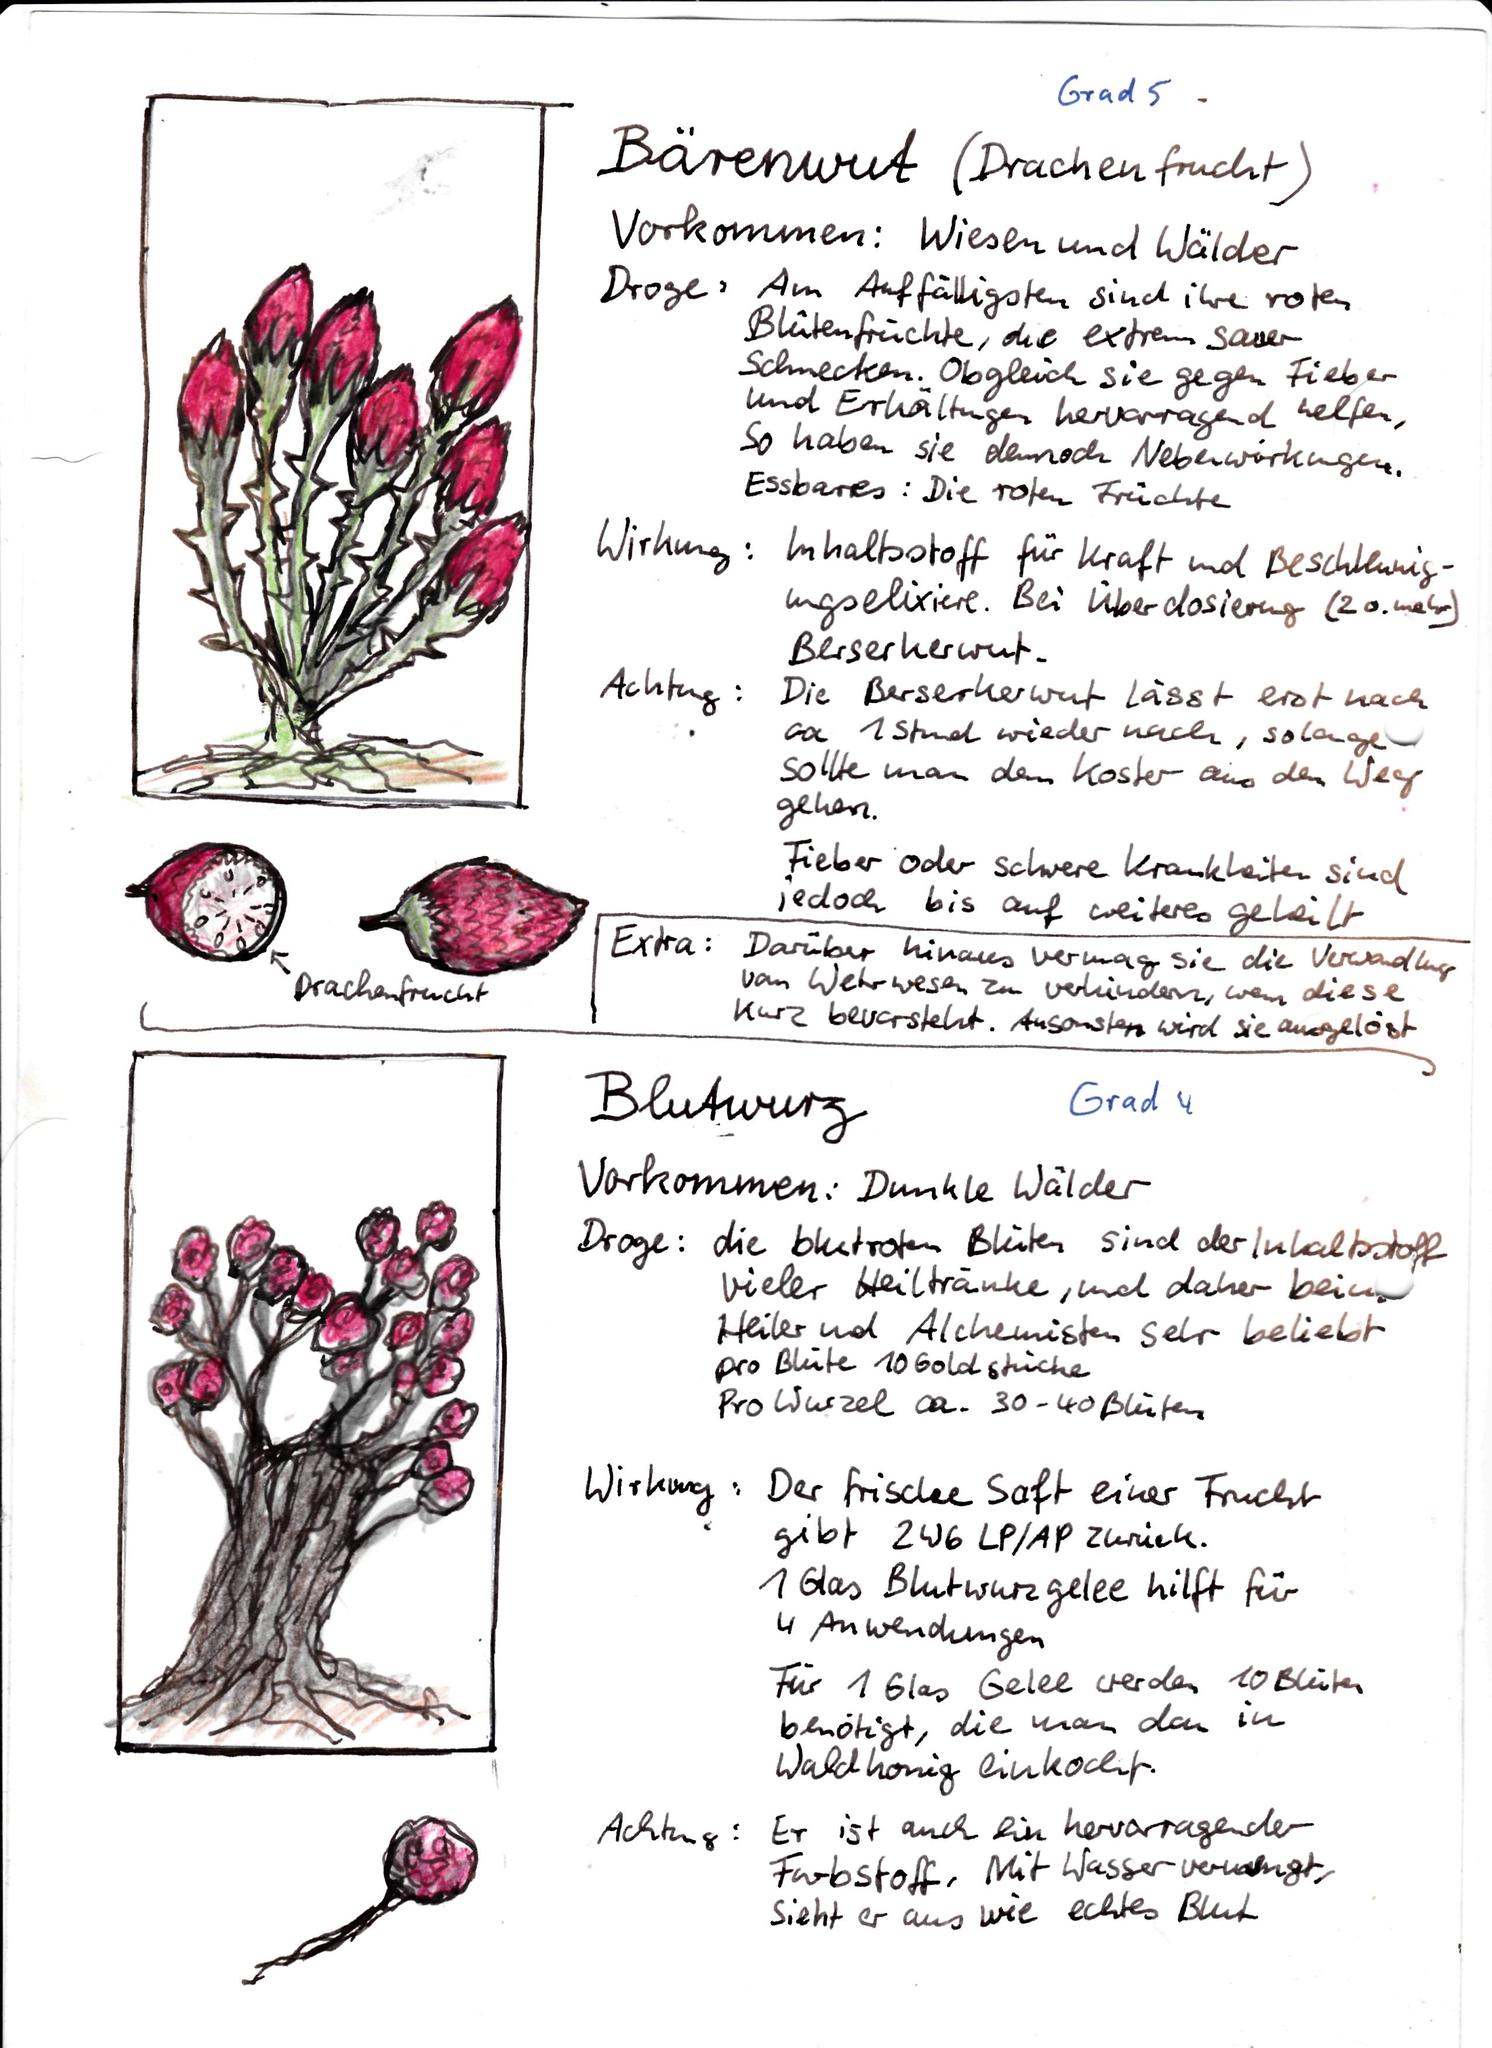 Grad 5
Bärenwut (Drachenfrucht)
Vorkommen: Wiesen und Wälder
Droge: Am Auffälligsten sind ihre roten
Blütenfrüchte, die extrem sauer
Schmecken. Obgleich sie gegen Fieber
und Erkältungen hervorragend helfen,
So haben sie dennoch Nebenwirkungen.
Essbares: Die roten Früchte
Wirkung: Inhaltsstoff für Kraft und Beschleunig-
ungselixiere. Bei Überdosierung (2 o. mehr)
Berserkerwut.
Achtung: Die Berserkerwut lässt erst nach
ca 1 Stund wieder nach, solange
sollte man dem Koster aus dem Weg
gehen.
Fieber oder schwere Krankheiten sind
jedoch bis auf weiteres geheilt
Drachenfrucht
Extra: Darüber hinaus vermag sie die Verwandlung
von Wehrwesen zu verhindern, wenn diese
Kurz bevorsteht. Ansonsten wird sie ausgelöst
Blutwurz
Grad 4
Vorkommen: Dunkle Wälder
Droge: die blutroten Blüten sind der Inhaltsstoff
vieler Heiltränke, und daher beim
Heiler und Alchemisten sehr beliebt
pro Blüte 10 Goldstücke
Pro Wurzel ca. 30-40 Blüten
Wirkung: Der frische Saft einer Frucht
gibt 2W6 LP/AP zurück.
1 Glas Blutwurzgelee hilft für
4 Anwendungen
Für 1 Glas Gelee werden 10 Blüten
benötigt, die man dan in
Waldhonig einkocht.
Achtung: Er ist auch ein hervorragender
Farbstoff. Mit Wasser vermengt,
Sieht er aus wie echtes Blut